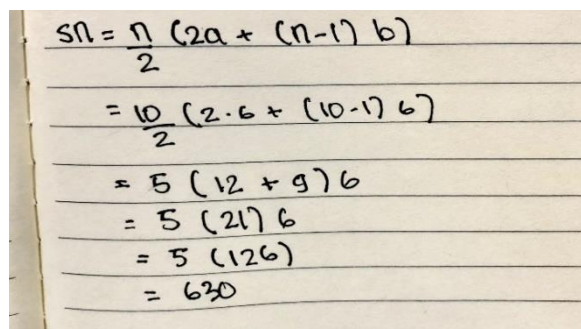 Sn = n/2 (2a + (n-1) b)
= 10/2 (2·6 + (10-1) 6)
= 5 (12 + 9) 6
= 5 (21) 6
= 5 (126)
= 630